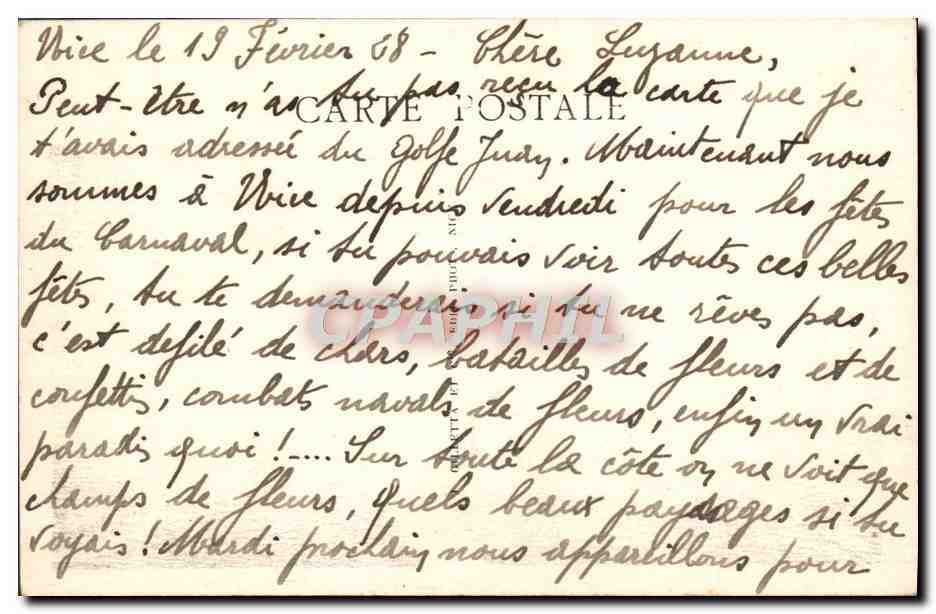 Nice le 19 Février 28 - Chère Suzanne,
Peut-être n'as tu pas reçu la carte que je
CARTE POSTALE
t'avais adressée du Golfe Juan. Maintenant nous
sommes à Nice depuis Vendredi pour les fêtes
du Carnaval, si tu pouvais voir toutes ces belles
fêtes, tu te demanderais si tu ne rêves pas,
CPAPHIL
c'est défilé de chars, batailles de fleurs et de
confettis, combats navals de fleurs, enfin un vrai
paradis quoi !..... Sur toute la côte on ne voit que
champs de fleurs, quels beaux paysages si tu
voyais ! Mardi prochain nous appareillons pour